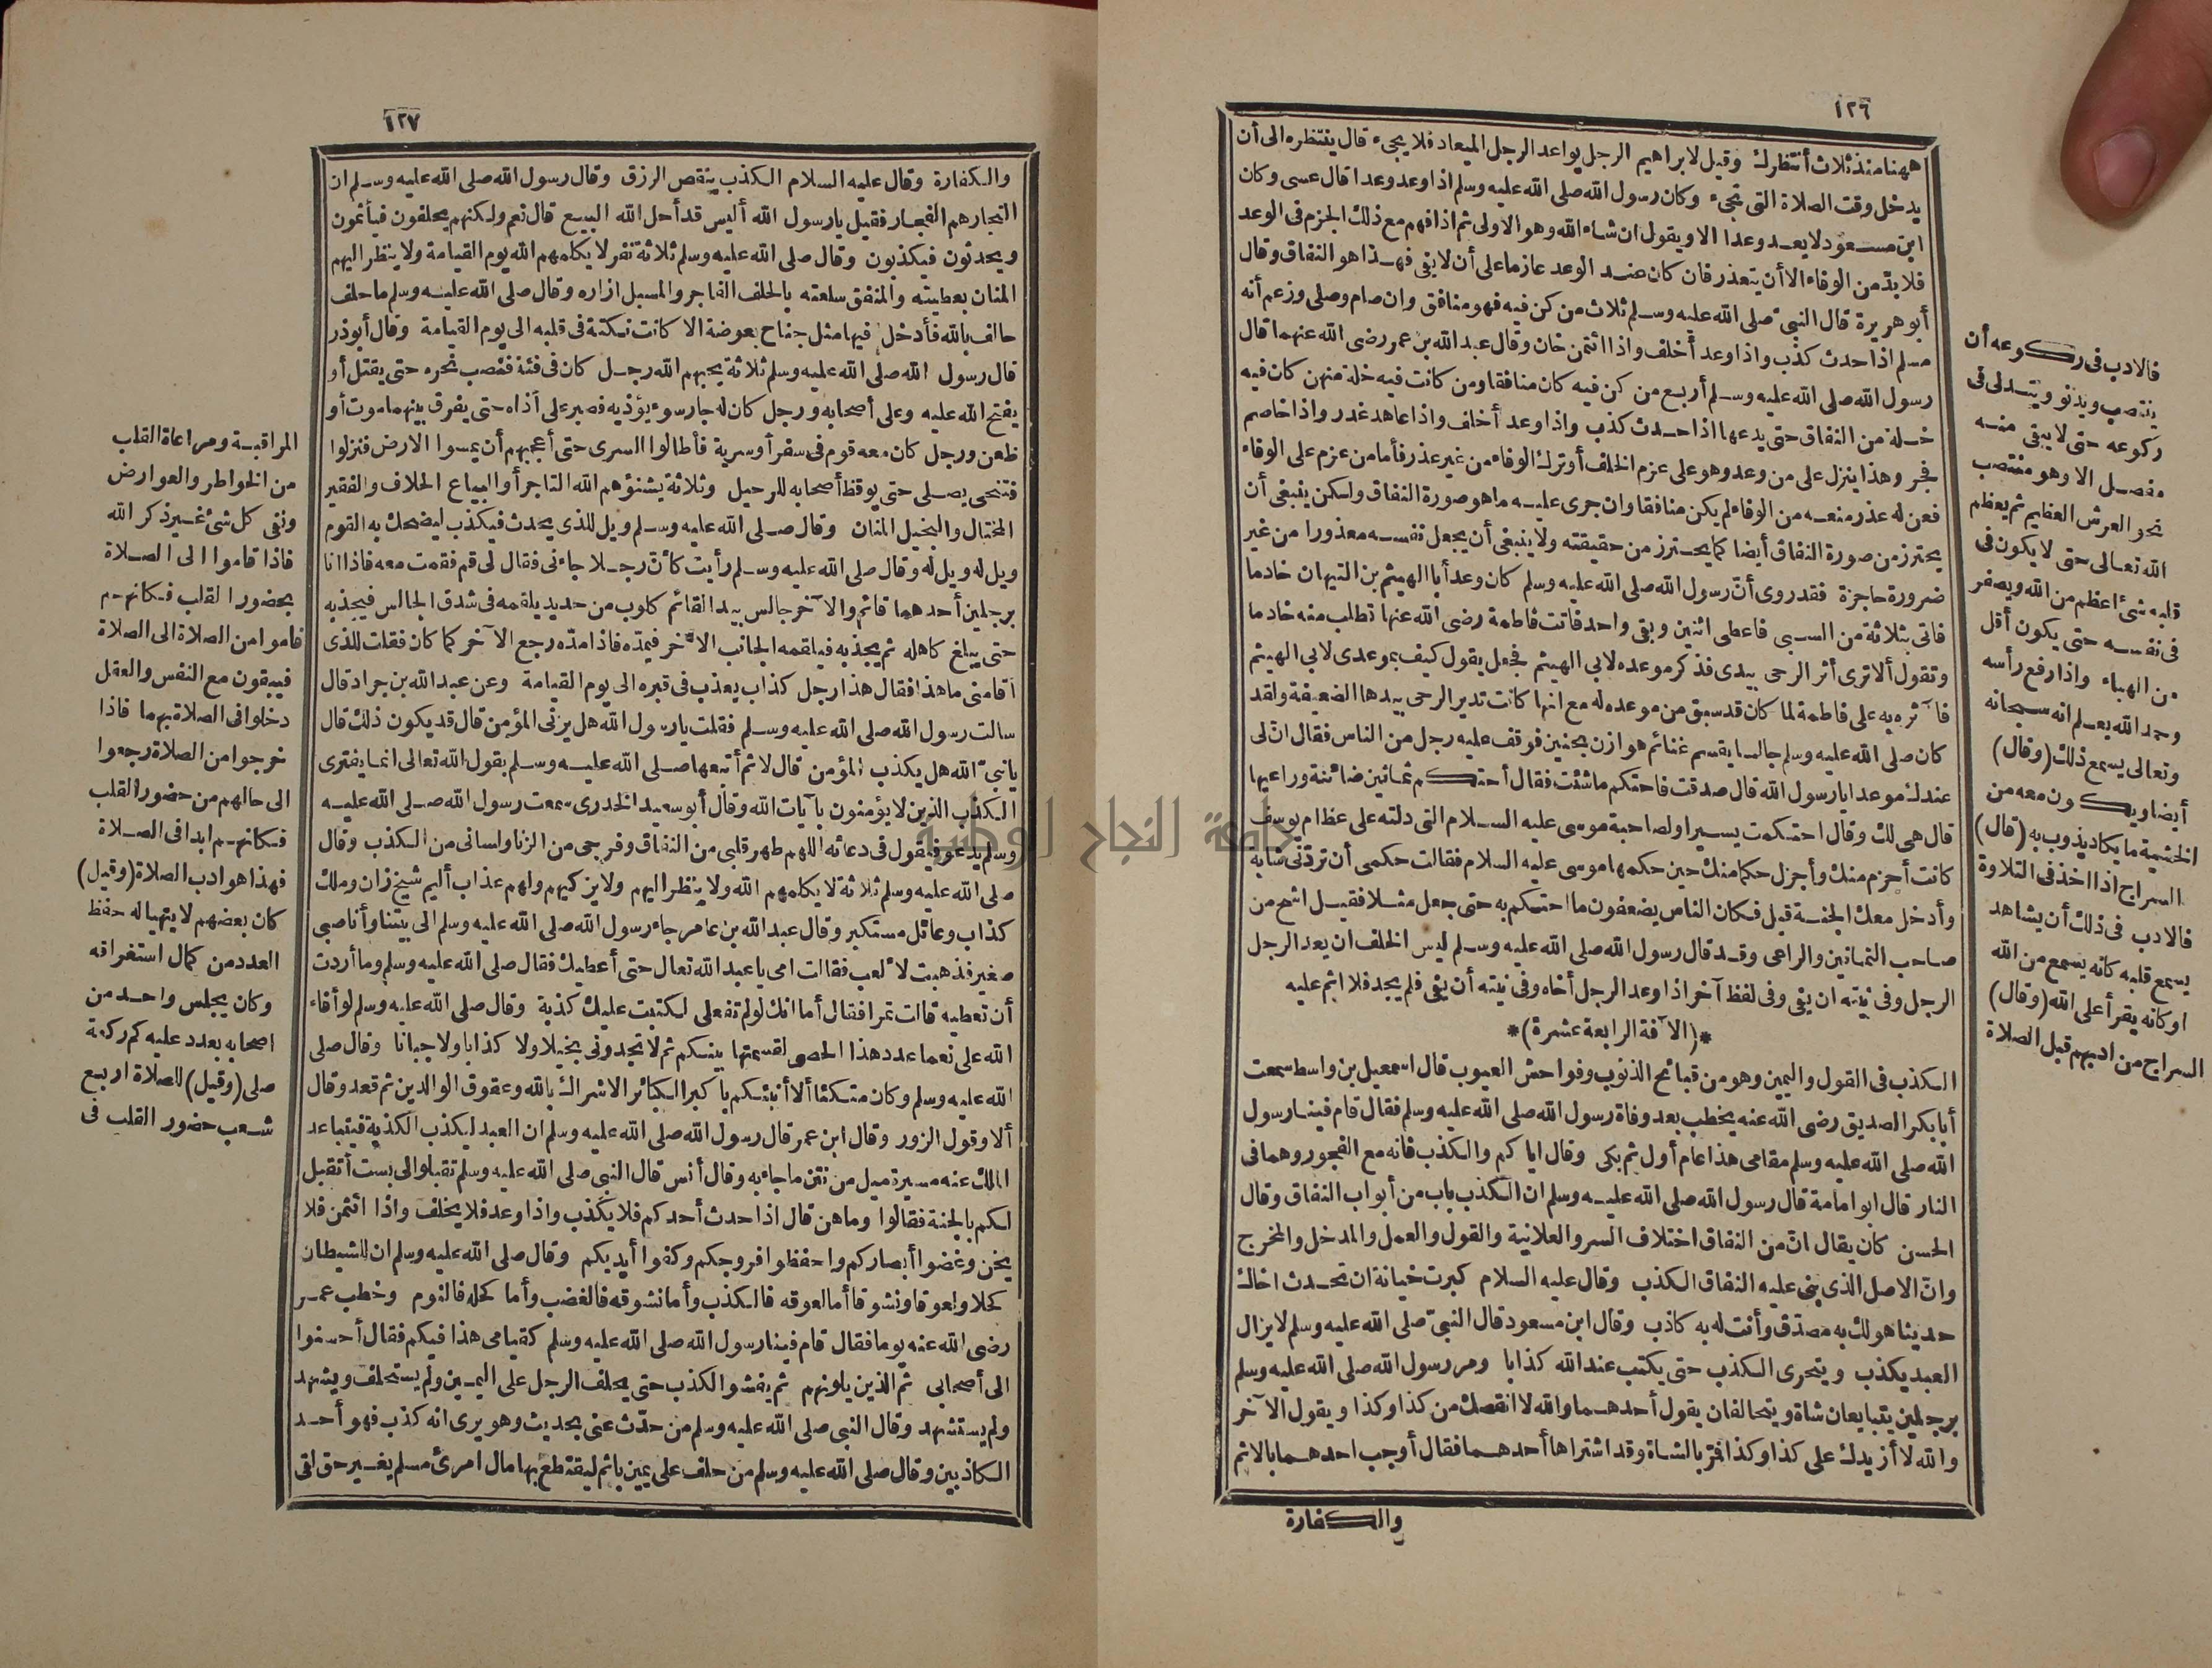 ١٢٦
ههنا منذ ثلاث أنتظرك وقيل لابراهيم الرجل يواعد الرجل الميعاد فلا يجىء قال ينتظره الى أن
يدخل وقت الصلاة التى تجىء وكان رسول الله صلى الله عليه وسلم اذا وعد وعدا قال عسى وكان
ابن مسعود لا يعد وعدا الا ويقول ان شاء الله وهو الاولى ثم اذا فهم مع ذلك الجزم فى الوعد
فلا بدّ من الوفاء الا أن يتعذر فان كان عند الوعد عازما على أن لا يفى فهذا هو النفاق وقال
أبو هريرة قال النبىّ صلى الله عليه وسلم ثلاث من كن فيه فهو منافق وان صام وصلى وزعم أنه
مسلم اذا حدث كذب واذا وعد أخلف واذا ائتمن خان وقال عبد الله بن عمر رضى الله عنهما قال
رسول الله صلى الله عليه وسلم أربع من كن فيه كان منافقا ومن كانت فيه خلة منهن كان فيه
خلة من النفاق حتى يدعها اذا حدث كذب واذا وعد أخلف واذا عاهد غدر واذا خاصم
فجر وهذا ينزل على من وعد وهو على عزم الخلف أو ترك الوفاء من غير عذر فأما من عزم على الوفاء
فعن له عذر منعه من الوفاء لم يكن منافقا وان جرى عليه ما هو صورة النفاق ولكن ينبغى أن
يحترز من صورة النفاق أيضا كما يحترز من حقيقته ولا ينبغى أن يجعل نفسه معذورا من غير
ضرورة حاجزة فقد روى أنّ رسول الله صلى الله عليه وسلم كان وعد أبا الهيثم بن التيهان خادما
فاتى بثلاثة من السبى فاعطى اثنين وبقى واحد فاتت فاطمة رضى الله عنها تطلب منه خادما
وتقول ألا ترى أثر الرحى بيدى فذكر موعده لابى الهيثم فجعل يقول كيف بموعدى لابى الهيثم
فآثره به على فاطمة لما كان قد سبق من موعده له مع انها كانت تدير الرحى بيدها الضعيفة ولقد
كان صلى الله عليه وسلم جالسا يقسم غنائم هوازن بحنين فوقف عليه رجل من الناس فقال ان لى
عندك موعدا يا رسول الله قال صدقت فاحتكم ما شئت فقال أحتكم ثمانين ضائنة وراعيها
قال هى لك وقال احتكمت يسيرا ولصاحبة موسى عليه السلام التى دلته على عظام يوسف
كانت أحزم منك وأجزل حكما منك حين حكمها موسى عليه السلام فقالت حكمى أن تردّنى شابة
وأدخل معك الجنة قيل فكان الناس يضعفون ما احتكم به حتى جعل مثلا فقيل اشح من
صاحب الثمانين والراعى وقد قال رسول الله صلى الله عليه وسلم ليس الخلف ان يعد الرجل
الرجل وفى نيته ان يفى وفى لفظ آخر اذا وعد الرجل أخاه وفى نيته أن يفى فلم يجد فلا اثم عليه
*(الآفة الرابعة عشرة)*
الكذب فى القول واليمين وهو من قبائح الذنوب وفواحش العيوب قال اسمعيل بن واسط سمعت
أبا بكر الصديق رضى الله عنه يخطب بعد وفاة رسول الله صلى الله عليه وسلم فقال قام فينا رسول
الله صلى الله عليه وسلم مقامى هذا عام أول ثم بكى وقال اياكم والكذب فانه مع الفجور وهما فى
النار قال ابو امامة قال رسول الله صلى الله عليه وسلم ان الكذب باب من أبواب النفاق وقال
الحسن كان يقال انّ من النفاق اختلاف السر والعلانية والقول والعمل والمدخل والمخرج
وانّ الاصل الذى بنى عليه النفاق الكذب وقال عليه السلام كبرت خيانة ان تحدث اخاك
حديثا هو لك به مصدّق وأنت له به كاذب وقال ابن مسعود قال النبىّ صلى الله عليه وسلم لا يزال
العبد يكذب ويتحرى الكذب حتى يكتب عند الله كذابا ومر رسول الله صلى الله عليه وسلم
برجلين يتبايعان شاة ويتحالفان يقول أحدهما والله لا انقصك من كذا وكذا ويقول الآخر
والله لا أزيدك على كذا وكذا فمرّ بالشاة وقد اشتراها أحدهما فقال أوجب احدهما بالاثم
والكفارة
فالادب فى ركوعه أن
ينتصب ويدنو ويتدلى فى
ركوعه حتى لا يبقى منه
مفصل الا وهو منتصب
نحو العرش العظيم ثم يعظم
الله تعالى حتى لا يكون فى
قلبه شئ اعظم من الله ويصغر
فى نفسه حتى يكون أقل
من الهباء واذا رفع رأسه
وحمد الله يعلم انه سبحانه
وتعالى يسمع ذلك (وقال)
أيضا ويكون معه من
الخشية ما يكاد يذوب به (قال)
السراج اذا اخذ فى التلاوة
فالادب فى ذلك أن يشاهد
يسمع قلبه كانه يسمع من الله
او كانه يقرأ على الله (وقال)
السراج من ادبهم قبل الصلاة
١٢٧
والكفارة وقال عليه السلام الكذب ينقص الرزق وقال رسول الله صلى الله عليه وسلم ان
التجار هم الفجار فقيل يا رسول الله أليس قد أحل الله البيع قال نعم ولكنهم يحلفون فيأثمون
ويحدثون فيكذبون وقال صلى الله عليه وسلم ثلاثة نفر لا يكلمهم الله يوم القيامة ولا ينظر اليهم
المنان بعطيته والمنفق سلعته بالحلف الفاجر والمسبل ازاره وقال صلى الله عليه وسلم ما حلف
حالف بالله فأدخل فيها مثل جناح بعوضة الا كانت نكتة فى قلبه الى يوم القيامة وقال أبو ذر
قال رسول الله صلى الله عليه وسلم ثلاثة يحبهم الله رجل كان فى فئة فنصب نحره حتى يقتل أو
يفتح الله عليه وعلى أصحابه ورجل كان له جار سوء يؤذيه فصبر على أذاه حتى يفرق بينهما موت أو
ظعن ورجل كان معه قوم فى سفر أو سرية فأطالوا السرى حتى أعجبهم أن يمسوا الارض فنزلوا
فتنحى يصلى حتى يوقظ أصحابه للرحيل وثلاثة يشنؤهم الله التاجر أو البياع الحلاف والفقير
المختال والبخيل المنان وقال صلى الله عليه وسلم ويل للذى يحدث فيكذب ليضحك به القوم
ويل له ويل له وقال صلى الله عليه وسلم رأيت كأنّ رجلا جاءنى فقال لى قم فقمت معه فاذا انا
برجلين أحدهما قائم والآخر جالس بيد القائم كلوب من حديد يلقمه فى شدق الجالس فيجذبه
حتى يبلغ كاهله ثم يجذبه فيلقمه الجانب الآخر فيمدّه فاذا مدّه رجع الآخر كما كان فقلت للذى
أقامنى ما هذا فقال هذا رجل كذاب يعذب فى قبره الى يوم القيامة وعن عبد الله بن جراد قال
سالت رسول الله صلى الله عليه وسلم فقلت يا رسول الله هل يزنى المؤمن قال قد يكون ذلك قال
يا نبىّ الله هل يكذب المؤمن قال لا ثم أتبعها صلى الله عليه وسلم بقول الله تعالى انما يفترى
الكذب الذين لا يؤمنون بآيات الله وقال أبو سعيد الخدرى سمعت رسول الله صلى الله عليه
وسلم يدعو فيقول فى دعائه اللهم طهر قلبى من النفاق وفرجى من الزنا ولسانى من الكذب وقال
صلى الله عليه وسلم ثلاثة لا يكلمهم الله ولا ينظر اليهم ولا يزكيهم ولهم عذاب أليم شيخ زان وملك
كذاب وعائل مستكبر وقال عبد الله بن عامر جاء رسول الله صلى الله عليه وسلم الى بيتنا وأنا صبى
صغير فذهبت لألعب فقالت امى يا عبد الله تعال حتى أعطيك فقال صلى الله عليه وسلم وما أردت
أن تعطيه قالت تمرا فقال أما انك لو لم تفعلى لكتبت عليك كذبة وقال صلى الله عليه وسلم لو أفاء
الله على نعما عدد هذا الحصى لقسمتها بينكم ثم لا تجدونى بخيلا ولا كذابا ولا جبانا وقال صلى
الله عليه وسلم وكان متكئا ألا أنبئكم باكبر الكبائر الاشراك بالله وعقوق الوالدين ثم قعد وقال
ألا وقول الزور وقال ابن عمر قال رسول الله صلى الله عليه وسلم ان العبد ليكذب الكذبة فيتباعد
الملك عنه مسيرة ميل من نتن ما جاء به وقال أنس قال النبى صلى الله عليه وسلم تقبلوا لى بست أتقبل
لكم بالجنة فقالوا وما هن قال اذا حدث أحدكم فلا يكذب واذا وعد فلا يخلف واذا ائتمن فلا
يخن وغضوا أبصاركم واحفظوا فروجكم وكفوا أيديكم وقال صلى الله عليه وسلم ان للشيطان
كحلا ولعوقا ونشوقا أما لعوقه فالكذب وأما نشوقه فالغضب وأما كحله فالنوم وخطب عمر
رضى الله عنه يوما فقال قام فينا رسول الله صلى الله عليه وسلم كقيامى هذا فيكم فقال أحسنوا
الى أصحابى ثم الذين يلونهم ثم يفشو الكذب حتى يحلف الرجل على اليمين ولم يستحلف ويشهد
ولم يستشهد وقال النبى صلى الله عليه وسلم من حدّث عنى بحديث وهو يرى انه كذب فهو أحد
الكاذبين وقال صلى الله عليه وسلم من حلف على يمين باثم ليقتطع بها مال امرئ مسلم بغير حق لقى
المراقبة ومراعاة القلب
من الخواطر والعوارض
ونفى كل شئ غير ذكر الله
فاذا قاموا الى الصلاة
بحضور القلب فكانهم
قاموا من الصلاة الى الصلاة
فيبقون مع النفس والعقل
دخلوا فى الصلاة بهما فاذا
خرجوا من الصلاة رجعوا
الى حالهم من حضور القلب
فكانهم ابدا فى الصلاة
فهذا هو ادب الصلاة (وقيل)
كان بعضهم لا يتهيا له حفظ
العدد من كمال استغراقه
وكان يجلس واحد من
اصحابه يعدد عليه كم ركعة
صلى (وقيل) للصلاة اربع
شعب حضور القلب فى
جامعة النجاح الوطنية